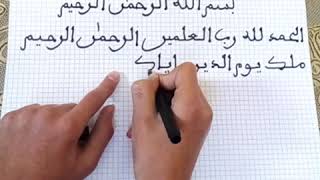 بسم الله الرحمٰن الرحيم
الحمد لله رب العلمين الرحمٰن الرحيم
ملك يوم الدين اياك